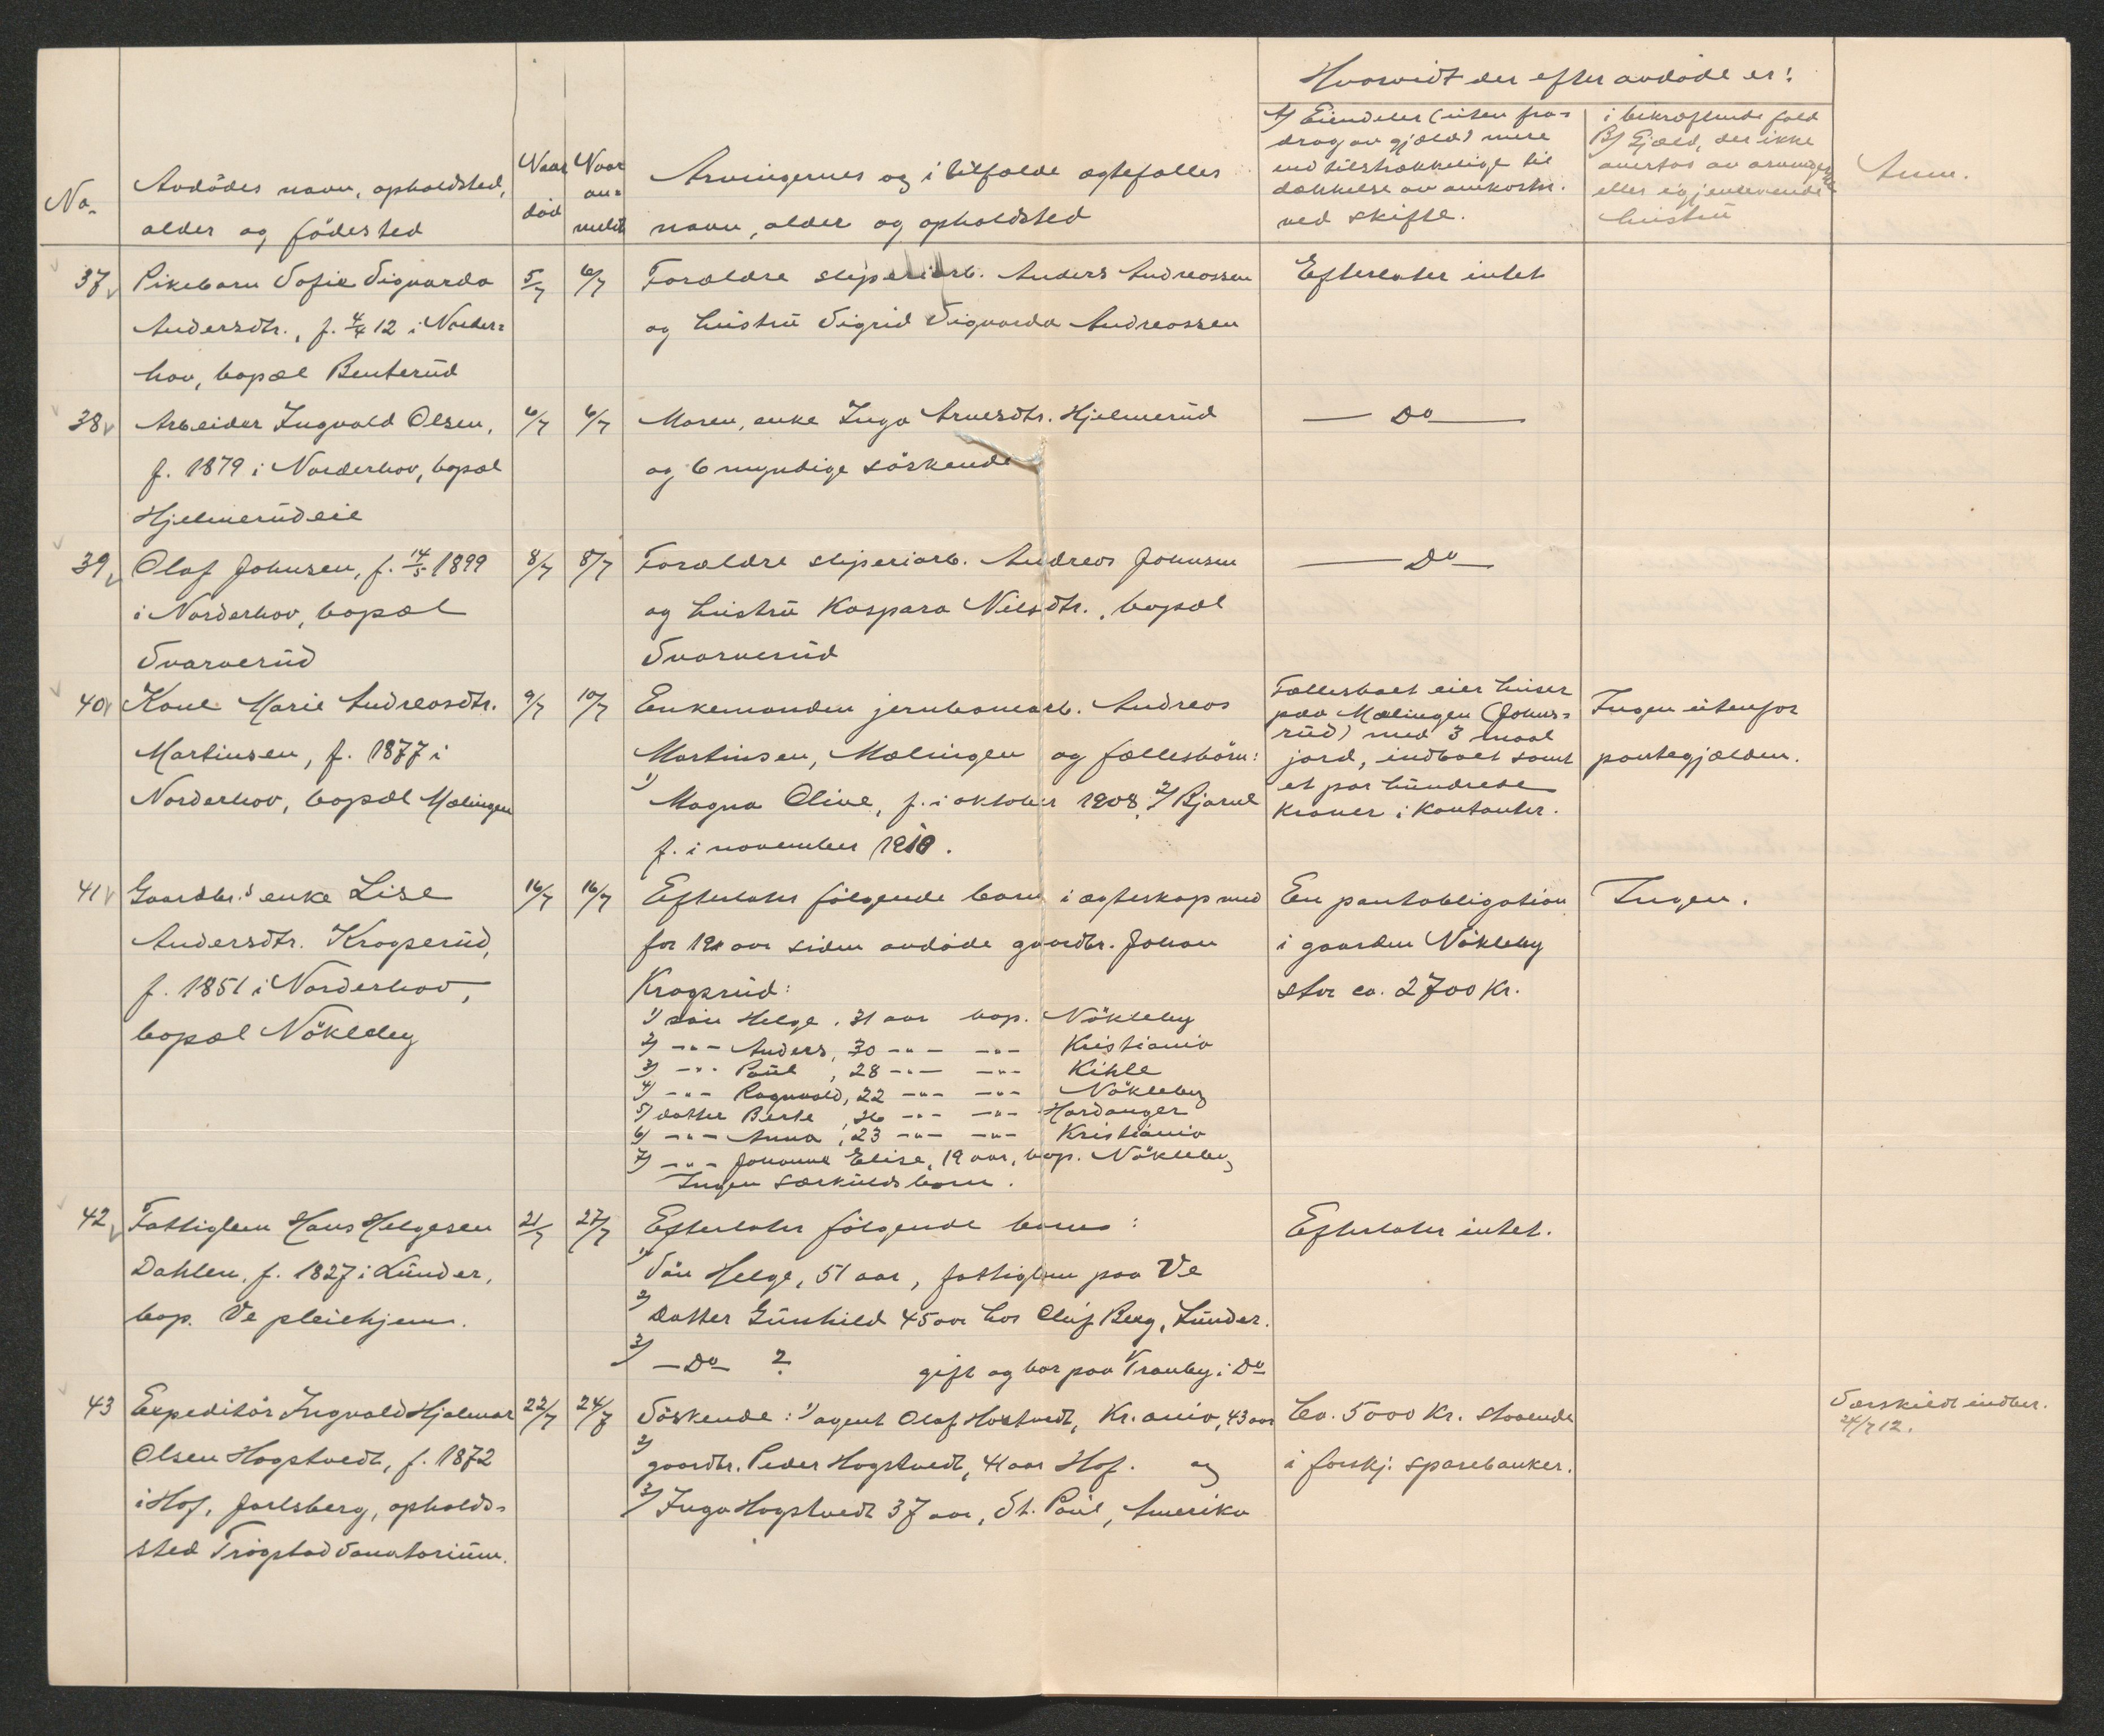 Hvorvidt der efter avdøde er:
No.
Avdödes navn, opholdsted,
alder og födested
Naar
död
Naar
an=
meldt
Arvingernes og i tilfælde ægtefælles
navn, alder og opholdsted
A/ Eiendeler (uten fra=
drag av gjæld) mere
end tilstrækkelige til
dækkelse av omkostn.
ved skifte.
i bekræftende fald
B/ Gjæld, der ikke
overtas av arvingene
eller gjenlevende
hustru
Anm.
37
Pikebarn Sofie Sigvarda
Andersdtr., f. 4/4 12 i Norder=
hov, bopæl Benterud
5/7
6/7
Forældre sliperiarb. Anders Andreassen
og hustru Sigrid Sigvarda Andreassen
Efterlater intet
38
Arbeider Ingvald Olsen,
f. 1879 i Norderhov, bopæl
Hjelmerudeie
6/7
6/7
Moren, enke Inga Arnesdtr. Hjelmerud
og 6 myndige söskende
— Do —
39
Olaf Johnsen, f. 14/5 1899
i Norderhov, bopæl
Svarverud
8/7
8/7
Forældre sliperiarb. Andreas Johnsen
og hustru Kaspara Nilsdtr., bopæl
Svarverud
— Do —
40
Kone Marie Andreasdtr.
Martinsen, f. 1877 i
Norderhov, bopæl Mælingen
9/7
10/7
Enkemanden jernbanearb. Andreas
Martinsen, Mælingen og fællesbörn:
1) Magna Olive, f. i oktober 1908, 2/ Bjarne
f. i november 1910.
Fællesboet eier huser
paa Mælingen (Johns=
rud) med 3 maal
jord, indboet samt
et par hundrede
kroner i kontanter.
Ingen utenfor
pantegjælden.
41
Gaardbr.s enke Lise
Andersdtr. Krogsrud,
f. 1851 i Norderhov,
bopæl Nökleby
16/7
16/7
Efterlater fölgende barn i ægteskap med
for aar siden avdöde gaardbr. Johan
Krogsrud:
1) sön Helge, 31 aar bop. Nökleby
2) -"- Anders, 30 -"- -"- Kristiania
3) -"- Paul, 28 -"- -"- Kihle
4) -"- Ragnvald, 22 -"- -"- Nökleby
5) datter Berte, 26 -"- -"- Hardanger
6) -"- Anna, 23 -"- -"- Kristiania
7) -"- Johanne Elise, 19 aar, bop. Nökleby
Ingen særkuldsbarn.
En pantobligation
i gaarden Nökleby
stor ca. 2700 kr.
Ingen.
42
Fattiglem Hans Helgesen
Dahlen, f. 1827 i Lunder,
bop. Ve pleiehjem.
21/7
27/7
Efterlater fölgende barn:
1) Sön Helge, 51 aar, fattiglem paa Ve
2) Datter Gunhild 45 aar hos Oluf Berg, Lunder.
3) — Do — ? gift og bor paa Tranby i Do
Efterlater intet.
43
Expeditör Ingvald Hjalmar
Olsen Hogstvedt, f. 1872
i Hof, Jarlsberg, opholds=
sted Trögstad Sanatorium.
22/7
24/7
Söskende: 1) agent Olaf Hostvedt, Kr.ania, 43 aar
2) gaardbr. Peder Hogstvedt, 41 aar Hof. og
3) Inga Hogstvedt 37 aar, St. Paul, Amerika
Ca. 5000 kr. staaende
i forskj. sparebanker.
Særskildt indber.
24/7 12.